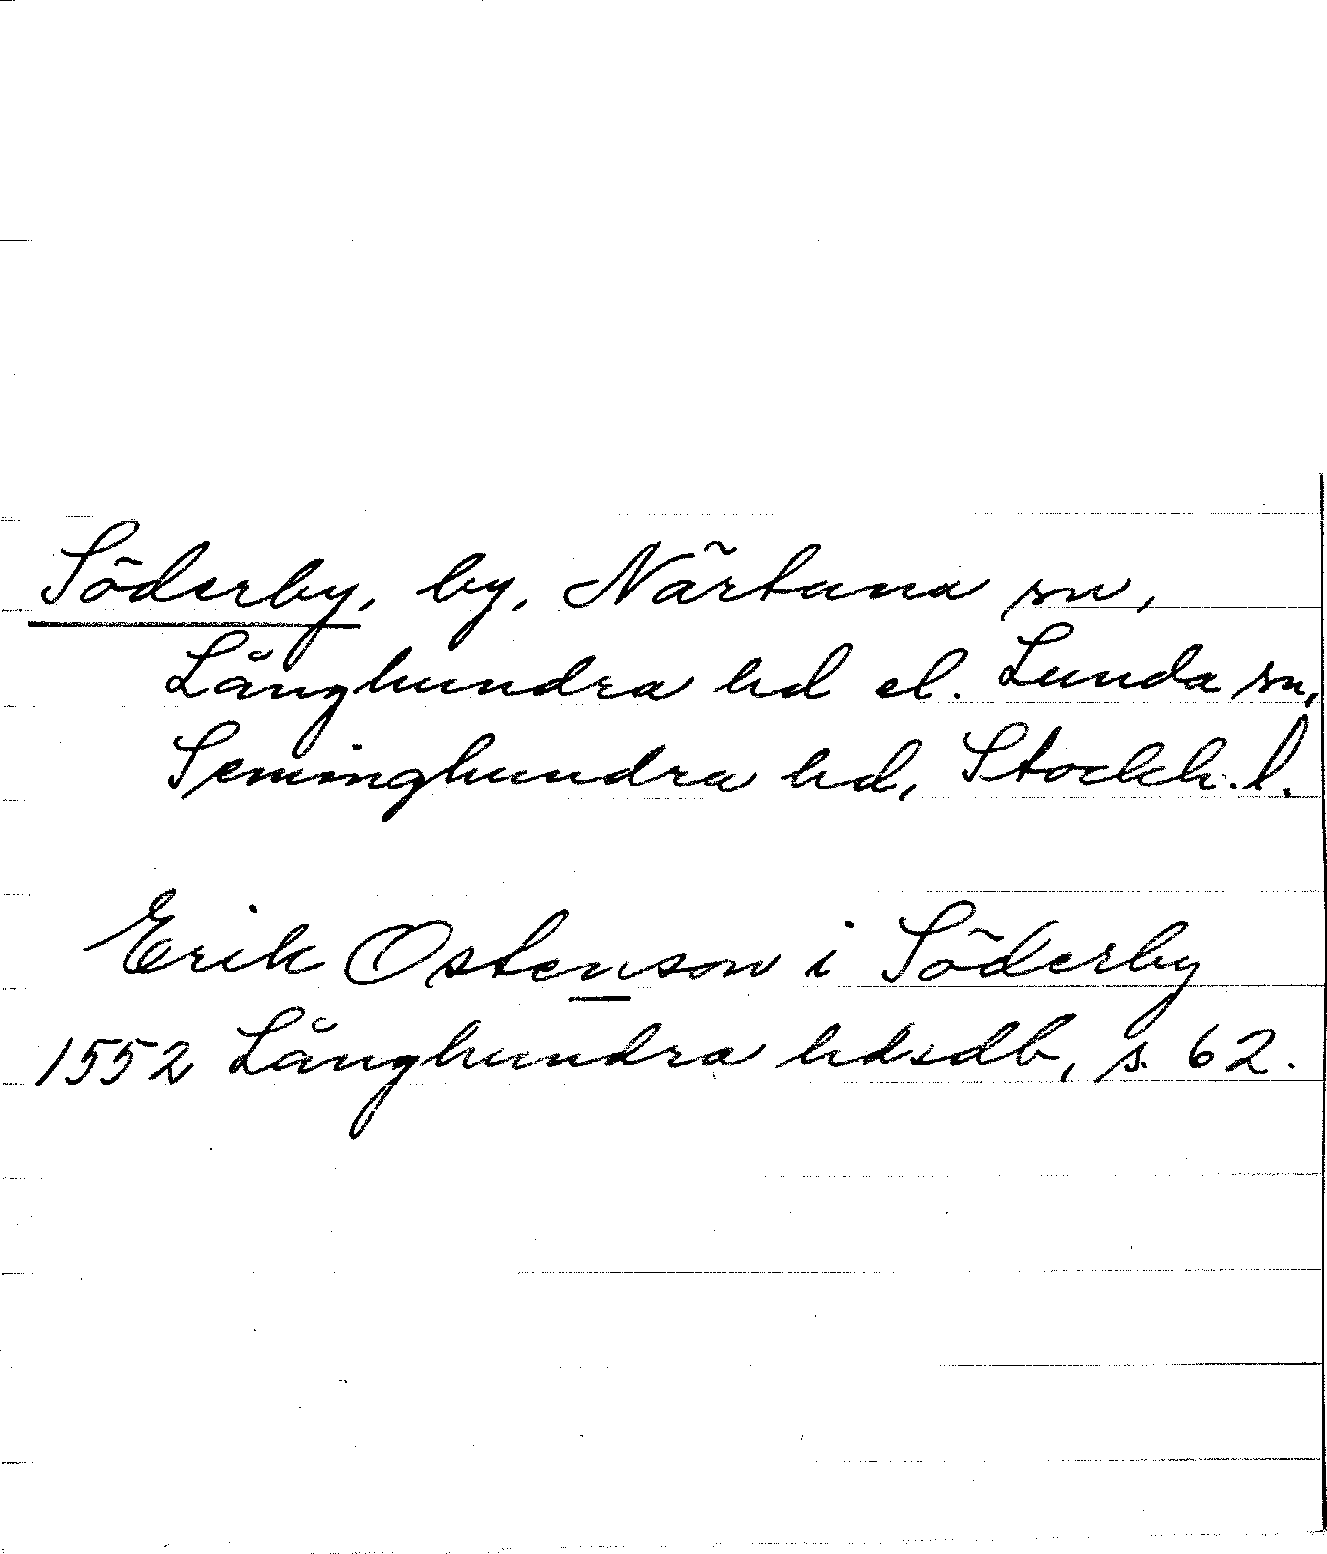 Söderby, by, Närtuna sn,
Långhundra hd el. Lunda sn,
Seminghundra hd, Stockh. l.
Erik Ostenson i Söderby
1552 Långhundra hdsdb, s. 62.